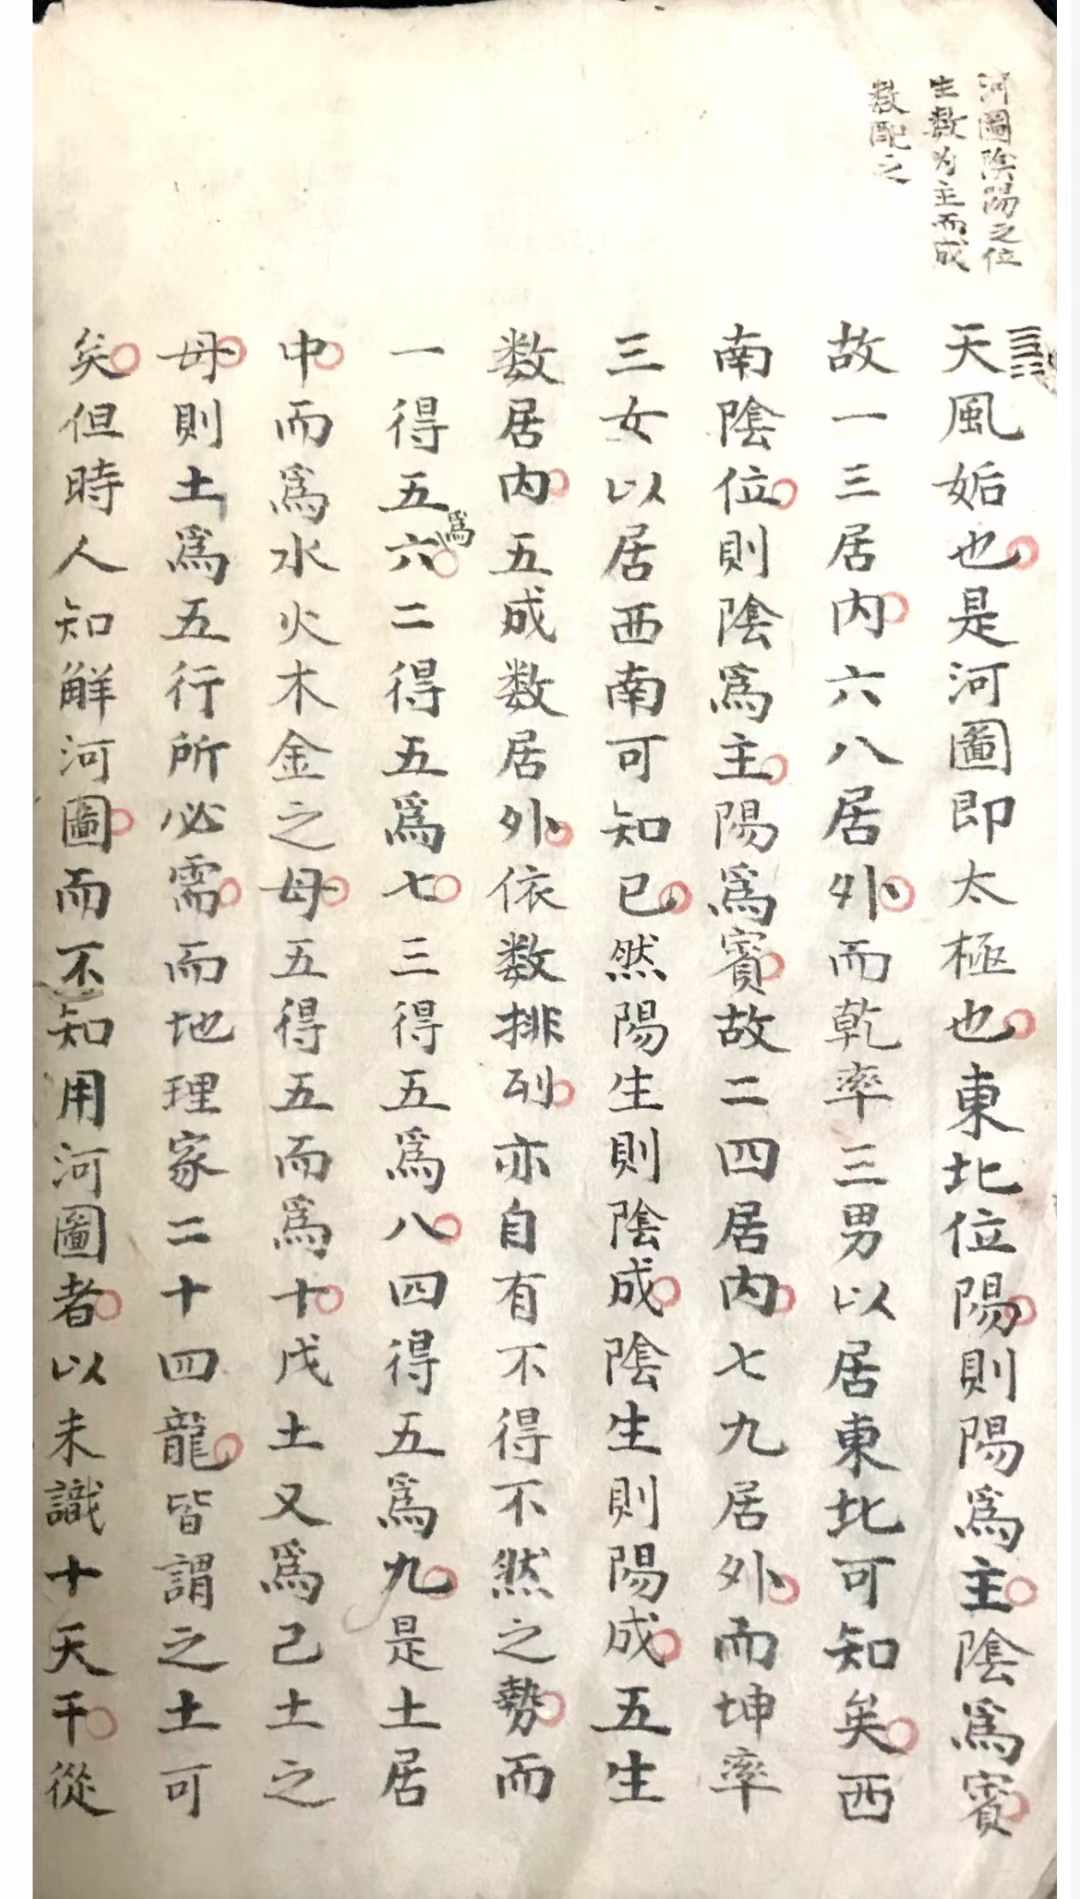 河圖陰陽之位
生數为主而成
數配之
天風姤也是河圖即太極也東北位陽則陽為主陰為賓
故一三居内六八居外而乾率三男以居東北可知矣西
南陰位則陰為主陽為賓故二四居内七九居外而坤率
三女以居西南可知已然陽生則陰成陰生則陽成五生
数居内五成数居外依数排列亦自有不得不然之勢而
一得五為六二得五為七三得五為八四得五為九是土居
中而為水火木金之母五得五而為十戊土又為己土之
母則土為五行所必需而地理家二十四龍皆謂之土可
矣但時人知解河圖而不知用河圖者以未識十天干從